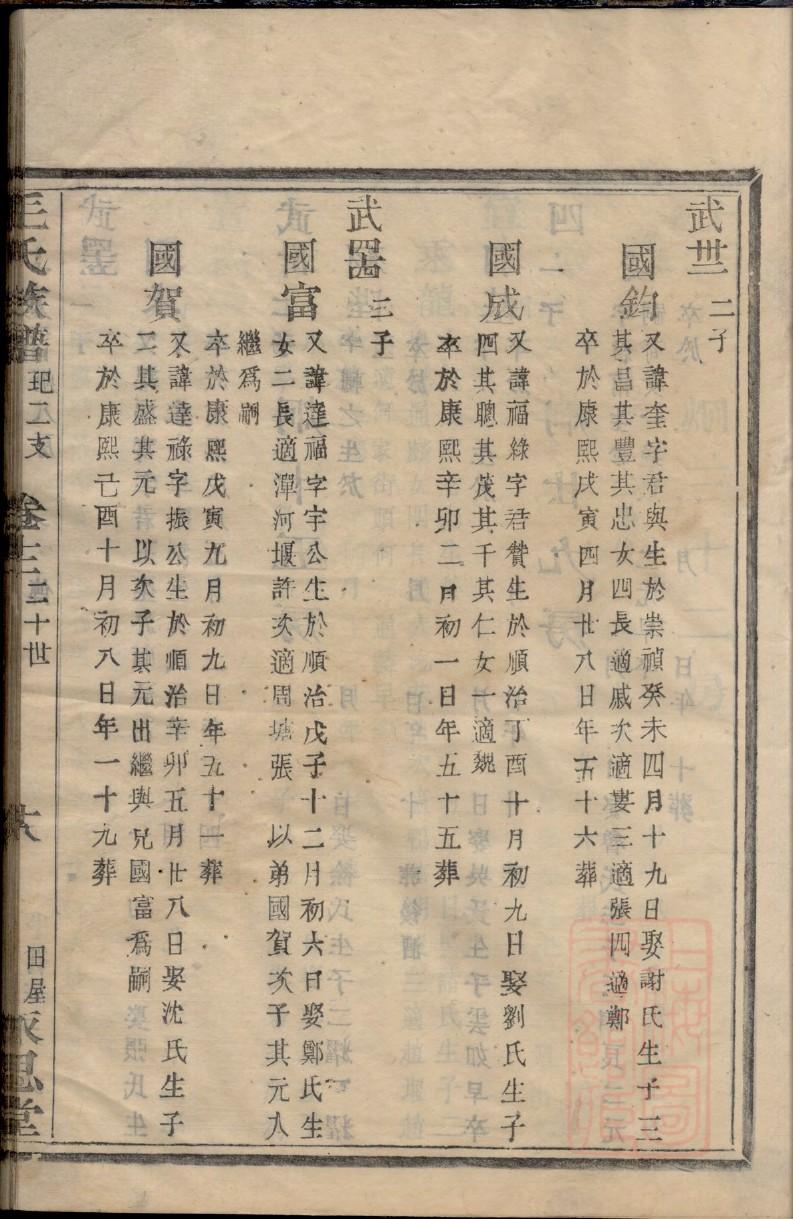 武丗 二子
國鈞
又諱奎字君與生於崇禎癸未四月十九日娶謝氏生子三
其昌其豐其忠女四長適戚次適婁三適張四適鄭
卒於康熙戊寅四月廿八日年五十六葬
國成
又諱福綠字君贊生於順治丁酉十月初九日娶劉氏生子
四其聰其茂其千其仁女一適魏
卒於康熙辛卯二日初一日年五十五葬
武噐 二子
國富
又諱達福字宇公生於順治戊子十二月初六日娶鄭氏生
女二長適潭河堰許次適周塘張 以弟國賀次子其元入
繼爲嗣
卒於康熙戊寅九月初九日年五十一葬
國賀
又諱達祿字振公生於順治辛卯五月廿八日娶沈氏生子
二其盛其元 以次子其元出繼與兄國富爲嗣
卒於康熙己酉十月初八日年一十九葬
王氏族譜 玘二支 卷十三 二十世 六 田屋 永思堂